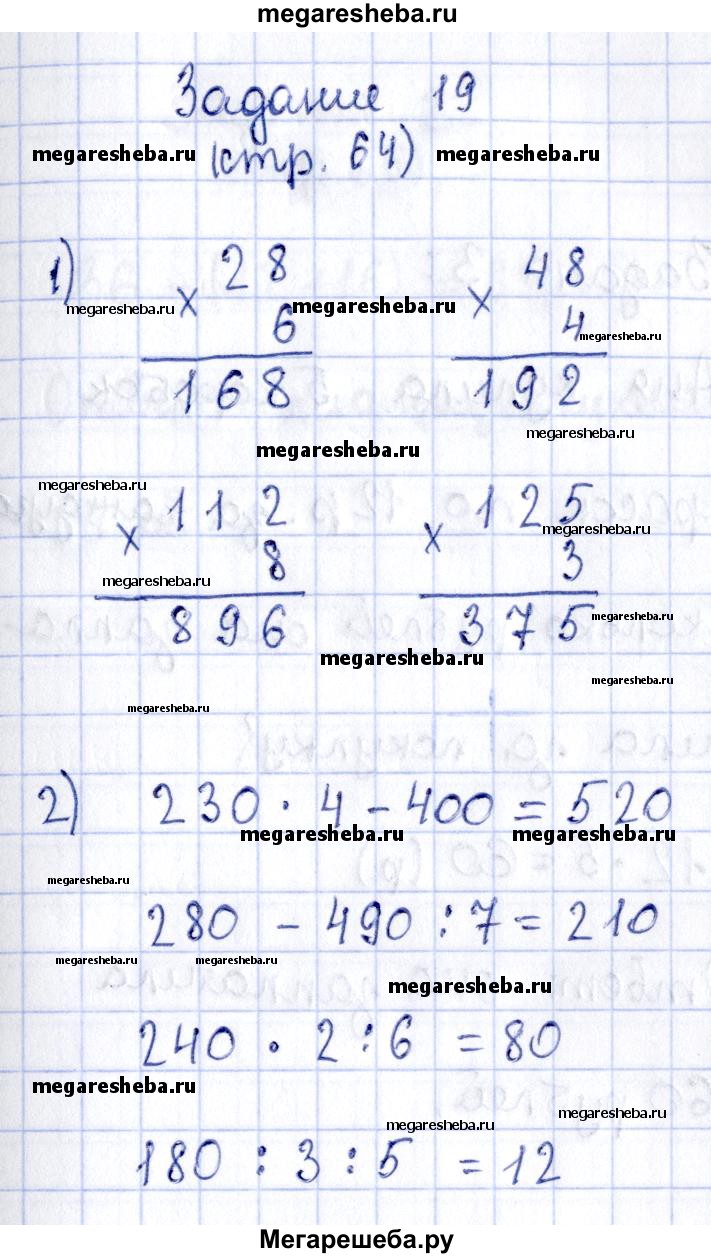 megaresheba.ru
Задание 19
megaresheba.ru (стр. 64) megaresheba.ru
1) 28 48
megaresheba.ru × megaresheba.ru ×
6 4 megaresheba.ru
168 192
megaresheba.ru
megaresheba.ru
megaresheba.ru
112 125
× × megaresheba.ru
megaresheba.ru 8 3
896 375 megaresheba.ru
megaresheba.ru
megaresheba.ru
megaresheba.ru
2) 230 · 4 - 400 = 520
megaresheba.ru megaresheba.ru
megaresheba.ru
280 - 490 : 7 = 210
megaresheba.ru megaresheba.ru
megaresheba.ru
240 · 2 : 6 = 80
megaresheba.ru
megaresheba.ru
megaresheba.ru
180 : 3 : 5 = 12
Мегарешеба.ру